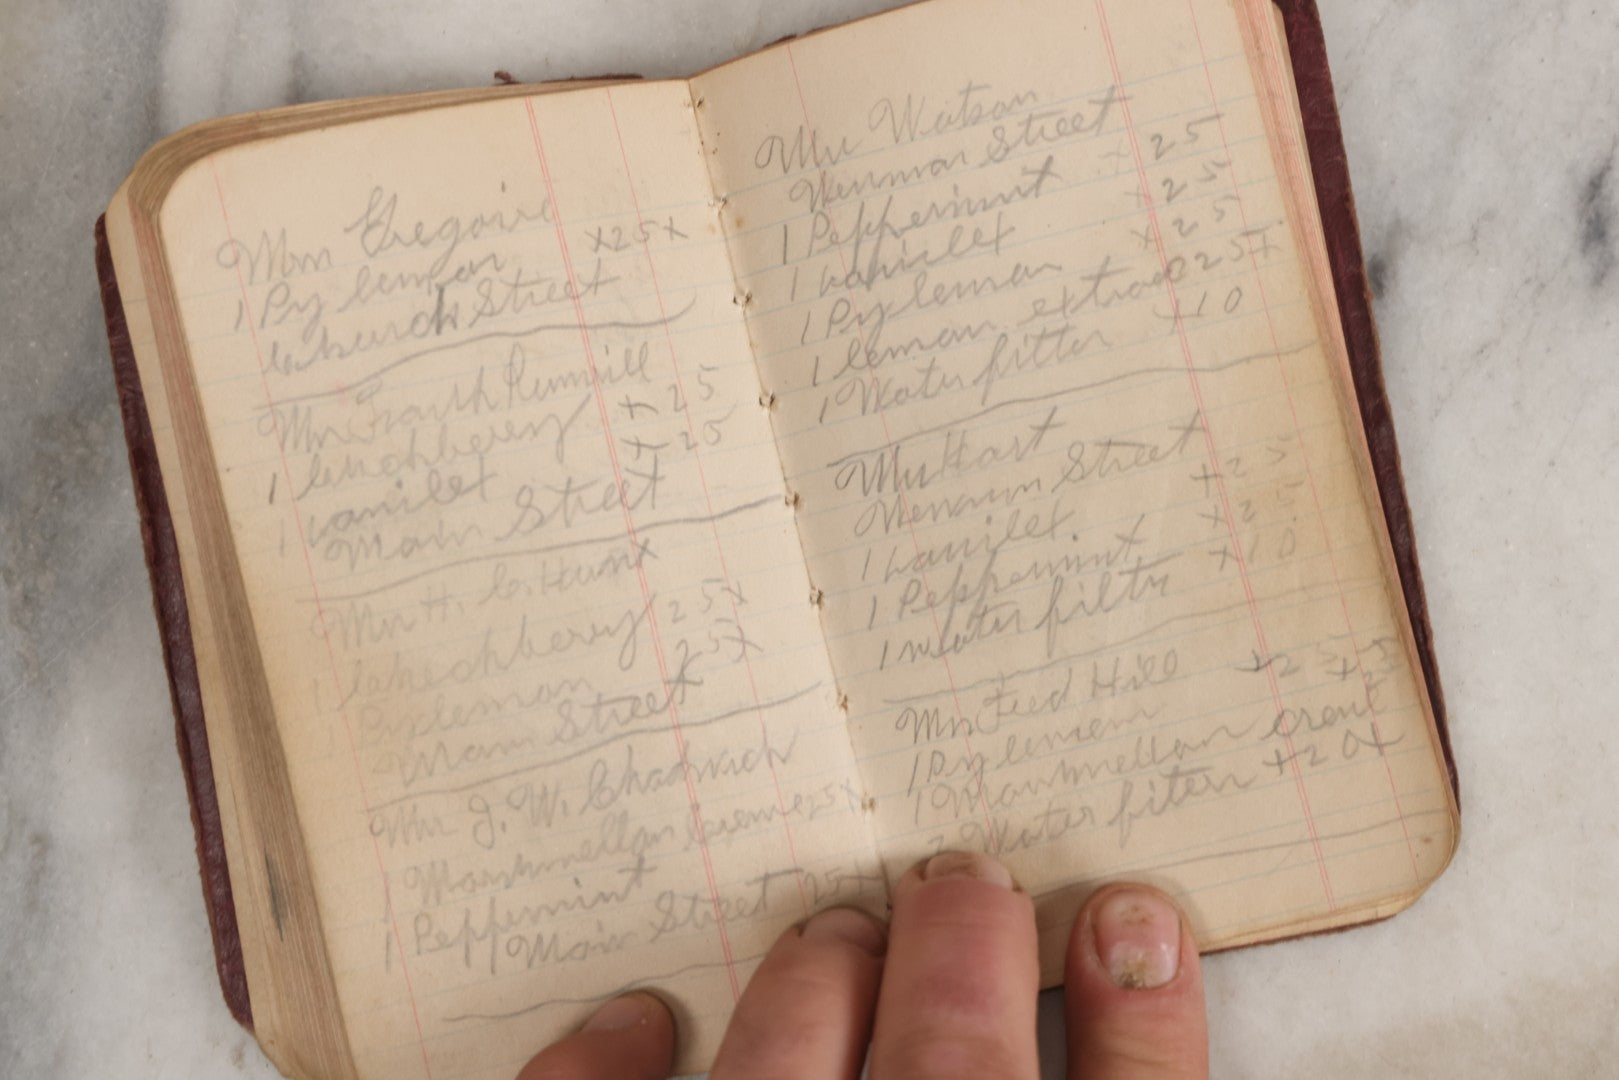 Mrs Gregoire
1 Py lemon x25x
Church Street
Mrs Frank
1 checkberry x 25
1 vanilet x 25
Main Street
Mrs H. C. Hunt
1 checkberry 25x
1 Py lemon 25x
Main Street
Mrs J. W. Chadwick
1 Marshmellan Creme 25x
1 Peppemint 25x
Main Street
Mrs Watson
Street
1 Peppermint x 25
1 vanilet x 25
1 Py lemon x 25
1 lemon extract 25x
1 Water fitter x10
Mrs Hart
Street
1 vanilet x25
1 Peppermint x25
1 water filtr x10
Mrs Fred Hill
1 Py lemon x25
1 Marshmellan creme x25
2 Water fiters x20x